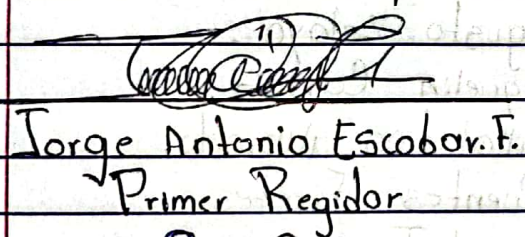 Jorge Antonio Escobar. F.
Primer Regidor